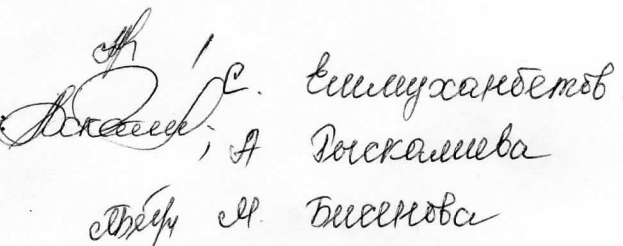 С. Ешмуханбетов
А Рыскалиева
М. Бисенова